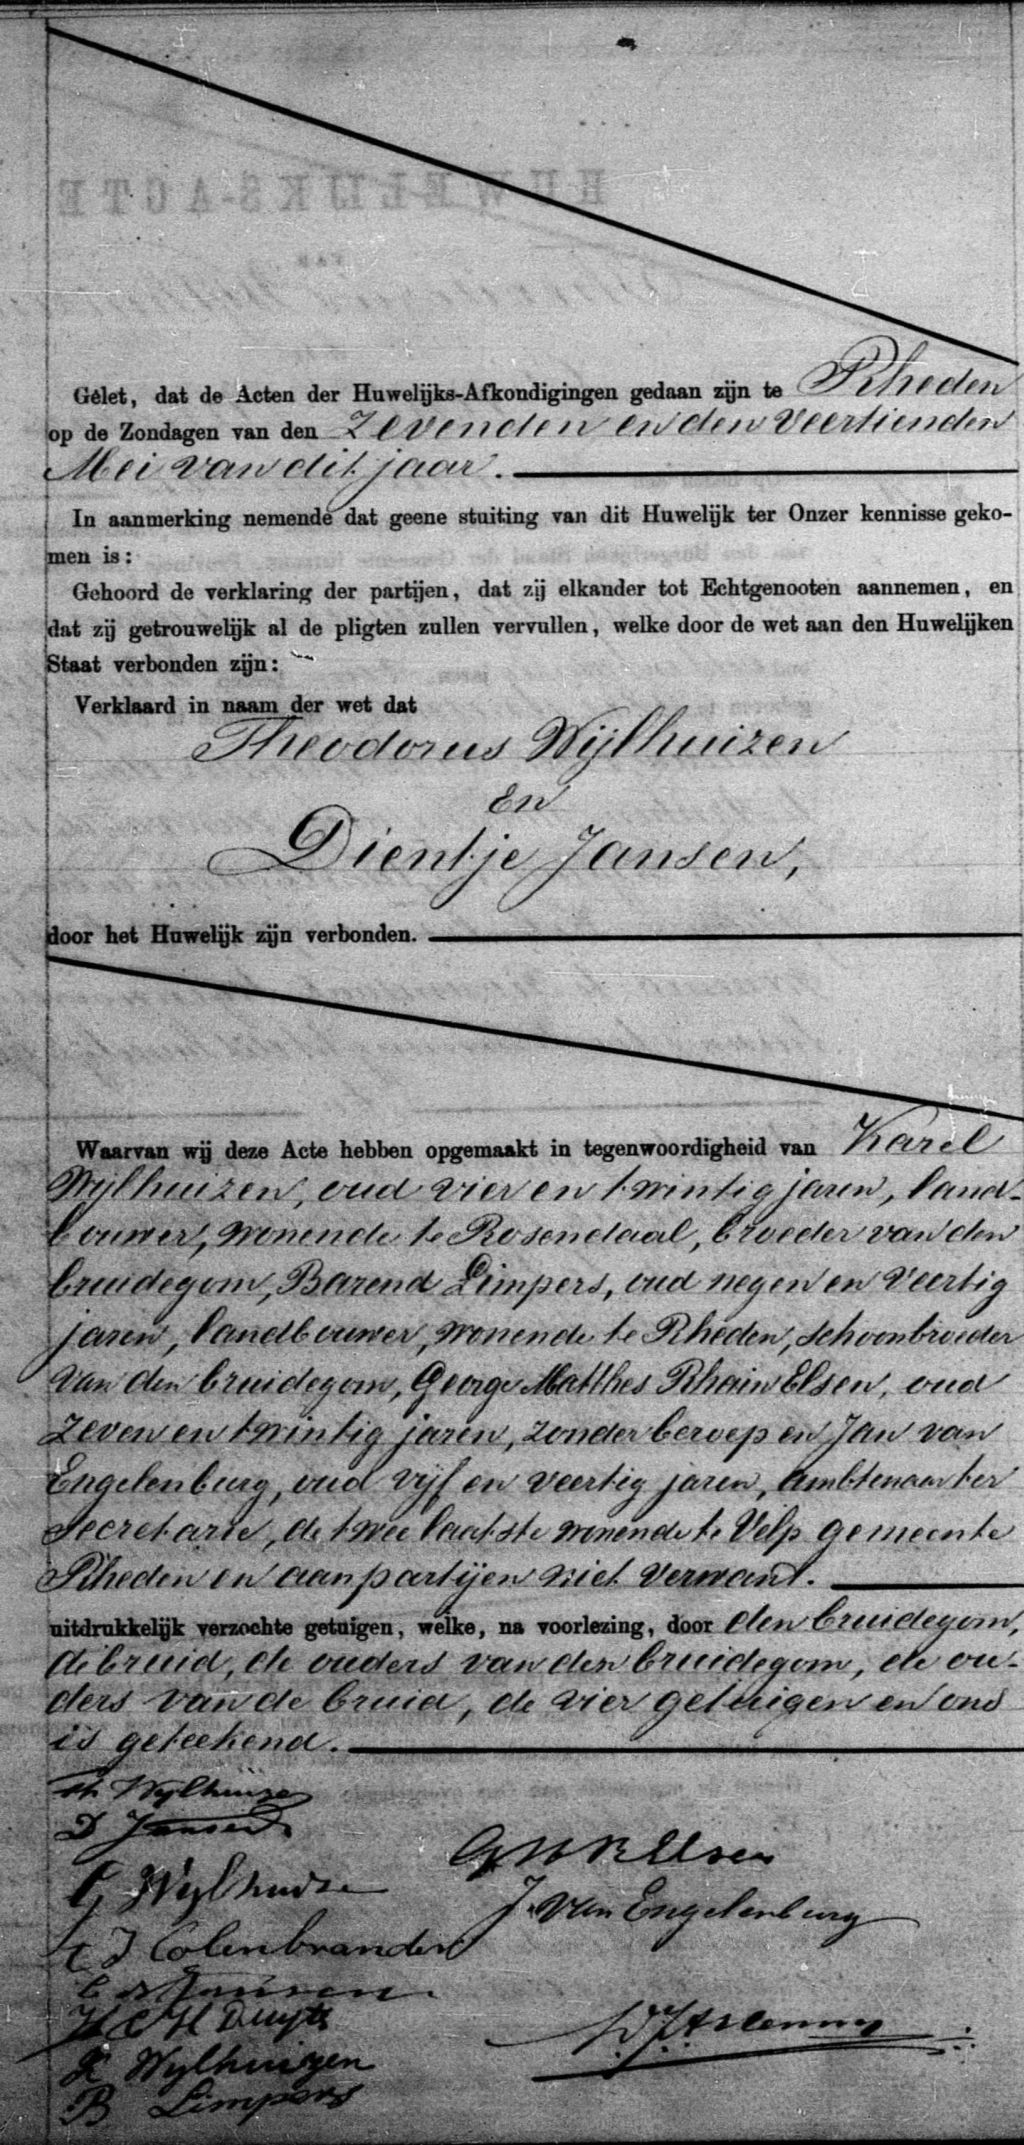 HUWELIJKS-ACTE
VAN
Gelet, dat de Acten der Huwelijks-Afkondigingen gedaan zijn te Rheden
op de Zondagen van den Zevenden en den Veertienden
Mei van dit jaar.
In aanmerking nemende dat geene stuiting van dit Huwelijk ter Onzer kennisse geko-
men is:
Gehoord de verklaring der partijen, dat zij elkander tot Echtgenooten aannemen, en
dat zij getrouwelijk al de pligten zullen vervullen, welke door de wet aan den Huwelijken
Staat verbonden zijn:
Verklaard in naam der wet dat
Theodorus Wijlhuizen
en
Dientje Jansen,
door het Huwelijk zijn verbonden.
Waarvan wij deze Acte hebben opgemaakt in tegenwoordigheid van Karel
Wijlhuizen, oud vier en twintig jaren, land-
bouwer, wonende te Rosendaal, broeder van den
bruidegom, Barend Limpers, oud negen en veertig
jaren, landbouwer, wonende te Rheden, schoonbroeder
van den bruidegom, George Matthes Rhain Elsen, oud
zeven en twintig jaren, zonder beroep en Jan van
Engelenburg, oud vijf en veertig jaren, ambtenaar ter
Secretarie, de twee laatste wonende te Velp gemeente
Rheden en aan partijen niet verwant.
uitdrukkelijk verzochte getuigen, welke, na voorlezing, door den bruidegom,
de bruid, de ouders van den bruidegom, de ou-
ders van de bruid, de vier getuigen en ons
is geteekend.
Th Wylhuize
D Jansen
G Wylhuize
J Colenbrander
Jansen
H C H Duyts
K Wylhuizen
B Limpers
G M R Elsen
J. Van Engelenburg